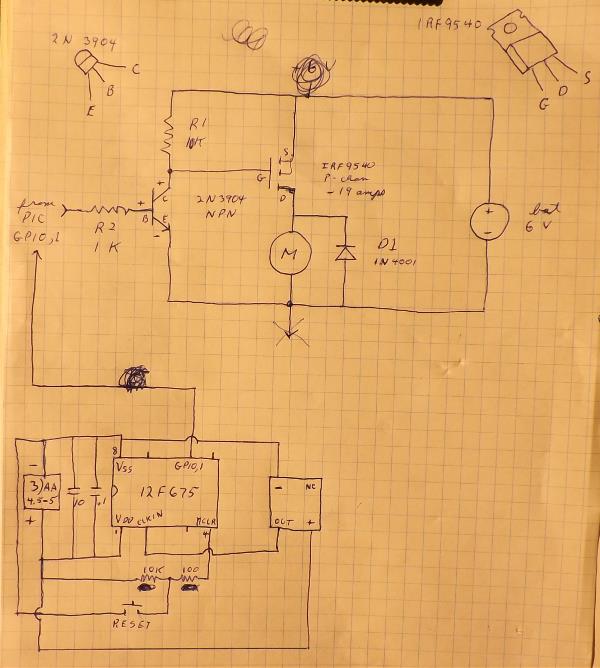 2N 3904
C
B
E
IRF9540
S
D
G
6 V
R1
10K
S
G
D
IRF9540
P-chan
-19 amps
from
PIC
GPIO,1
R2
1 K
+
B
C
E
-
2N3904
NPN
M
D1
1N4001
+
-
bat
6 V
8
VSS
GPIO,1
12F675
VDD
CLKIN
MCLR
1
4
-
3)AA
4.5-5
+
10
.1
-
NC
OUT
+
10K
100
RESET